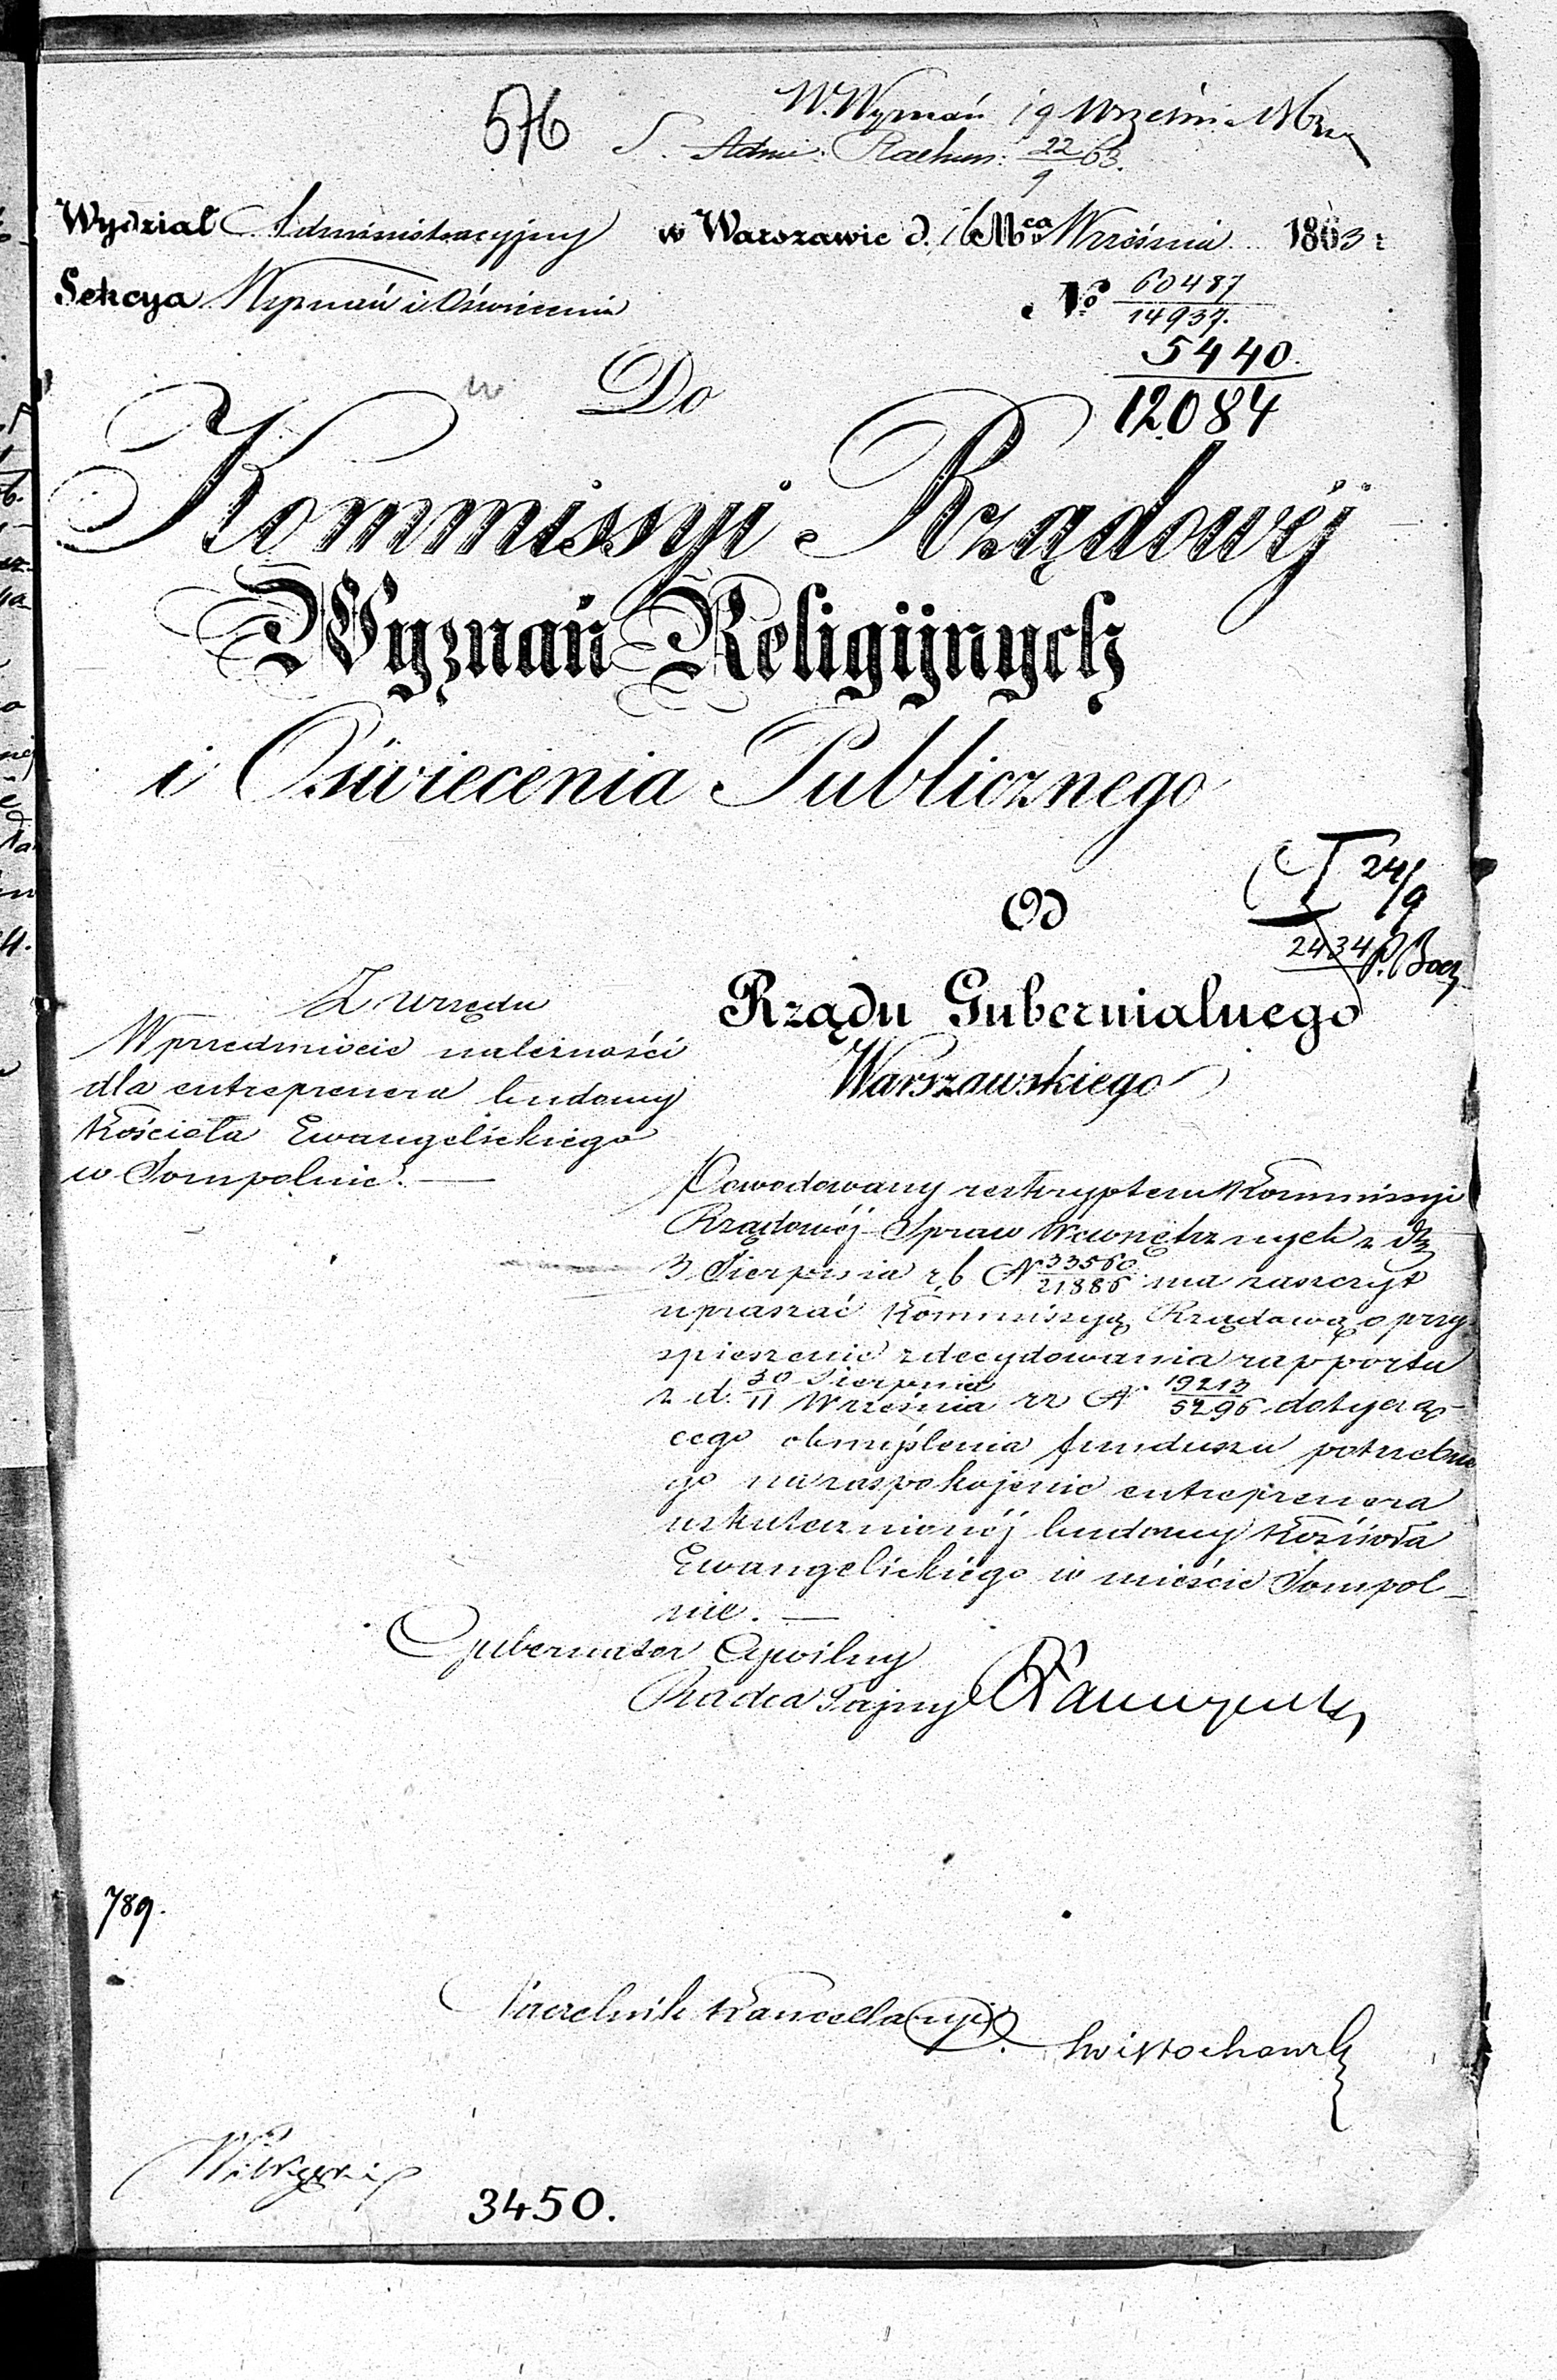 576
W. Wyznań 19 Wrześn.
S. Admi: Rachun: 22/9 63.
Wydział Administracyjny w Warszawie d. 16 Mca Września 1863 r.
Sekcya Wyznań i Oświecenia No 60487/14937.
5440
12084
Do
Kommissyi Rządowéj
Wyznań Religijnych
i Oświecenia Publicznego
24/9
2434
Od
Rządu Gubernialnego
Warszawskiego
Z urzędu
W przedmiocie należności
dla entreprenera budowy
Kościoła Ewangelickiego
w Sompolnie. —
Powodowany reskryptem Kommissyi
Rządowéj Spraw Wewnętrznych z d.
3 Sierpnia r. b. N 33560/21886 ma zaszczyt
upraszać Kommissyą Rządową o przy
spieszenie zdecydowania rapportu
z d. 30 Sierpnia/11 Września N 19213/5296 dotyczą-
cego obmyślenia funduszu potrzebne
go na zaspokojenie entreprenera
uskutecznionéj budowy Kościoła
Ewangelickiego w mieście Sompol-
nie. —
Gubernator Cywilny
Radca Tajny
789.
Naczelnik Kancellaryi
Świętochowski
3450.